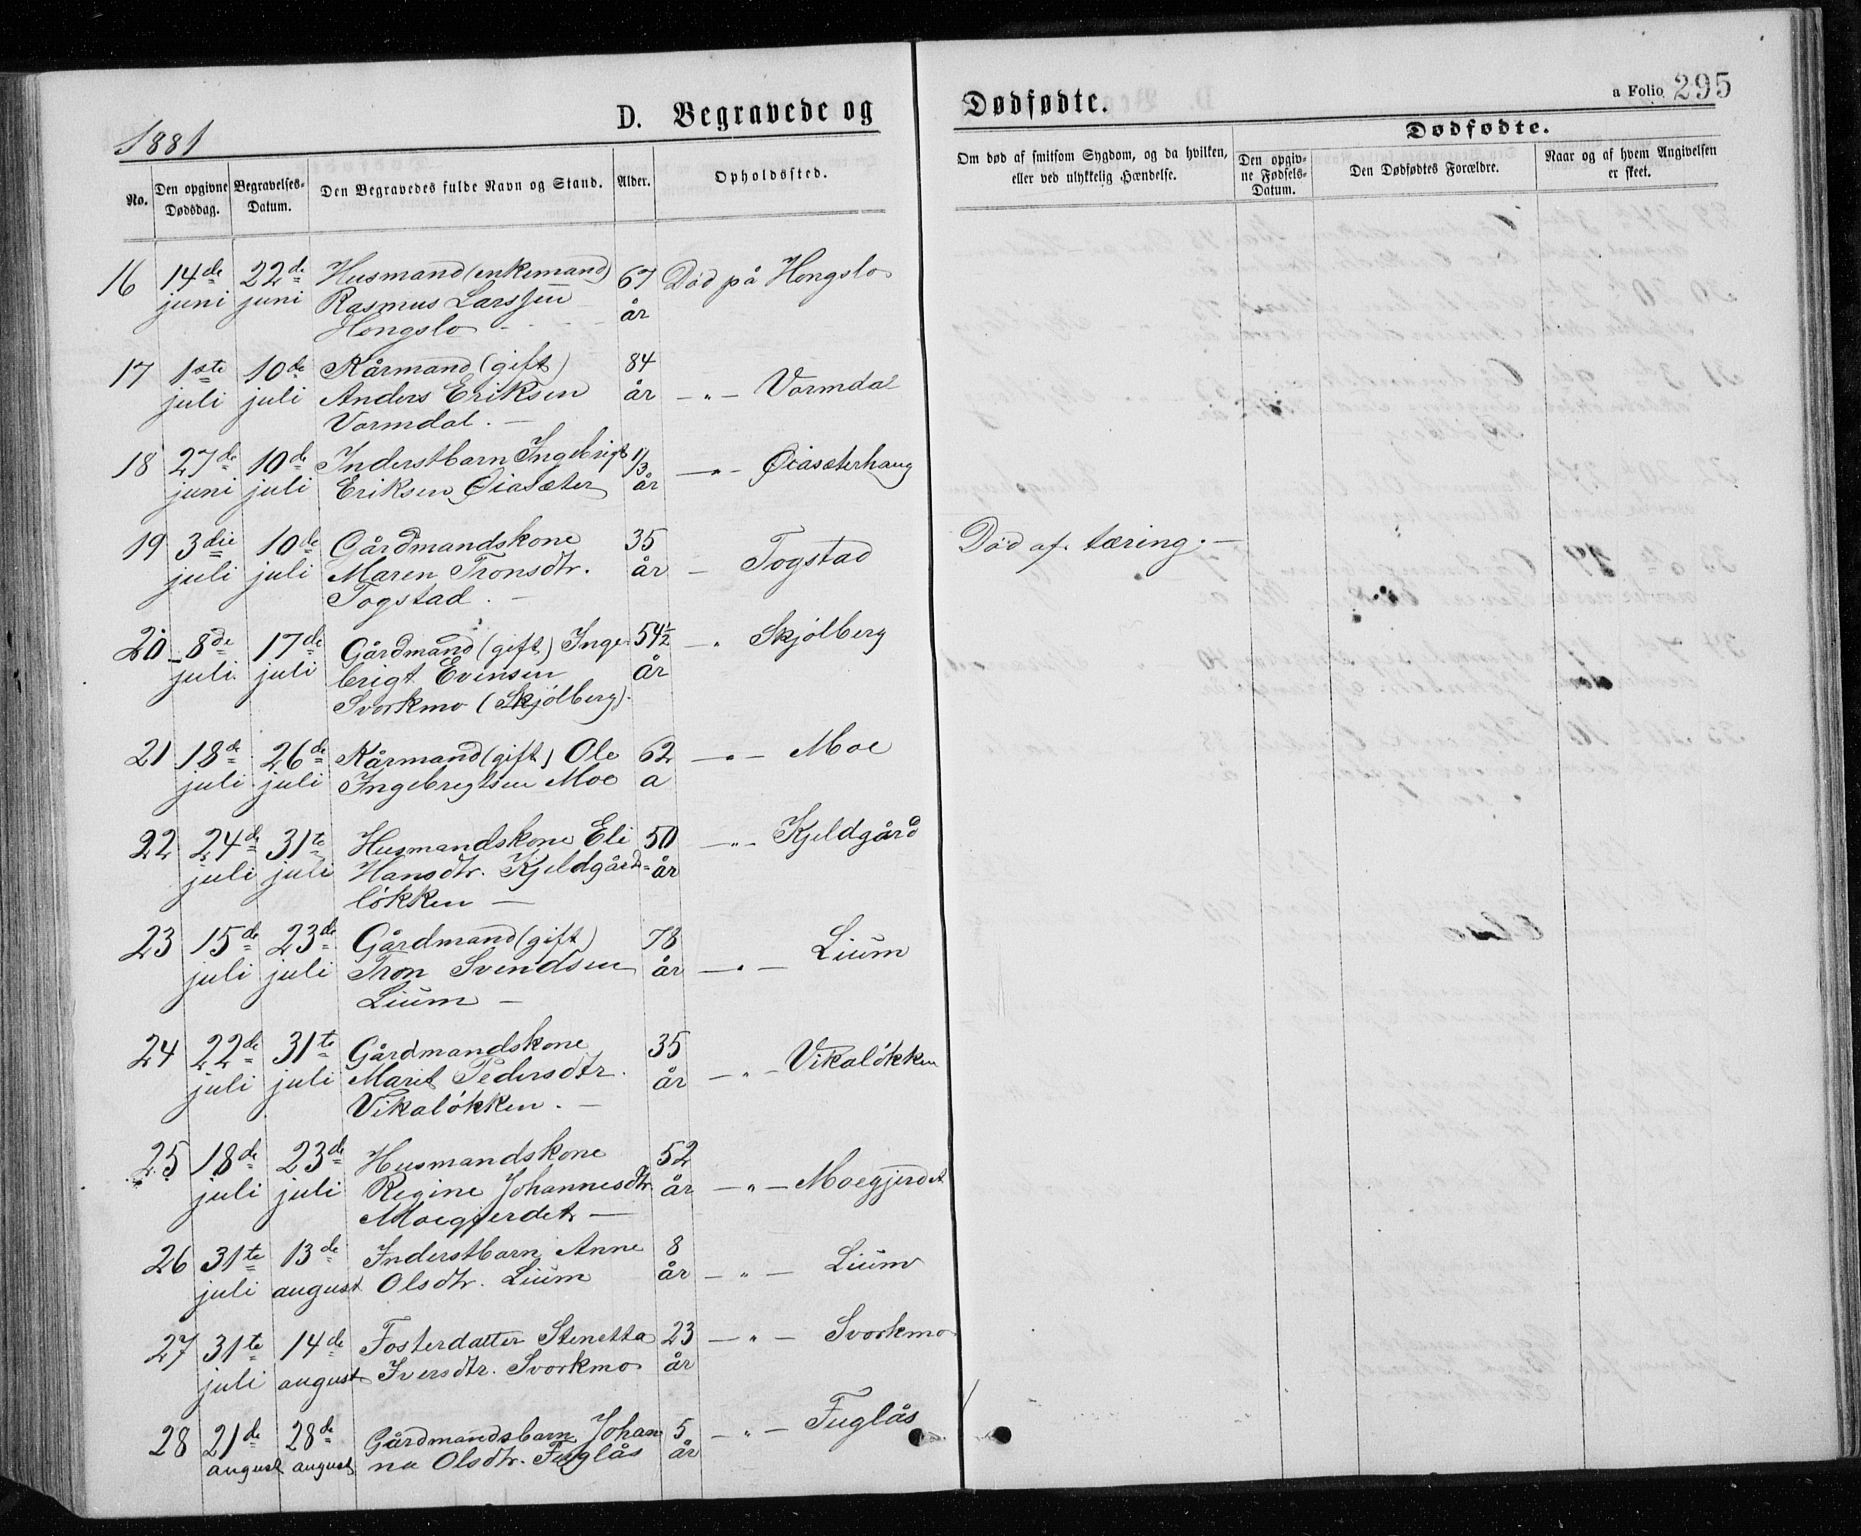 1881
D. Begravede og
Dødfødte.
a Folio 295
No.
Den opgivne Dødsdag.
Begravelses-Datum.
Den Begravedes fulde Navn og Stand.
Alder.
Opholdssted.
Om død af smitsom Sygdom, og da hvilken,
eller ved ulykkelig Hændelse.
Dødfødte.
Den opgivne Fødsels-Datum.
Den Dødfødtes Forældre.
Naar og af hvem Angivelsen er skeet.
16 14de 22de Husmand (enkemand) 67 Død på Hongslo
juni juni Rasmus Larssen år
Hongslo
17 1ste 10de Kårmand (gift) 84
juli juli Anders Eriksen år —„— Vormdal
Vormdal. —
18 27de 10de Inderstbarn Ingebrigt 1/3 —„— Øiasæterhaug
juni juli Eriksen Øiasæter år
19 3die 10de Gårdmandskone 35 Død af tæring. —
juli juli Maren Tronsdtr. år — Togstad
Togstad. —
20 8de 17de Gårdmand (gift) Inge- 54½ —„ Skjølberg
juli juli brigt Evensen år
Svorkmo (Skjølberg).
21 18de 26de Kårmand (gift) Ole 62 —„— Moe
juli juli Ingebrigtsen Moe a
22 24de 31te Husmandskone Eli 50 —„— Kjeldgård
juli juli Hansdtr. Kjeldgård- år
løkken —
23 15de 23de Gårdmand (gift) 78
juli juli Tron Svendsen år —„— Lium
Lium —
24 22de 31te Gårdmandskone 35
juli juli Marit Pedersdtr. år —„— Vikaløkken
Vikaløkken. —
25 18de 23de Husmandskone 52
juli juli Regine Johannesdtr. år —„— Moegjerdet
Moegjerdet —
26 31te 13de Inderstbarn Anne 8
juli august Olsdtr. Lium år —„— Lium
27 31te 14de Fosterdatter Stenetta 23 —„— Svorkmo
juli august Iversdtr. Svorkmo år
28 21de 28de Gårdmandsbarn Johan 5 —„— Fuglås
august august na Olsdtr. Fuglås år